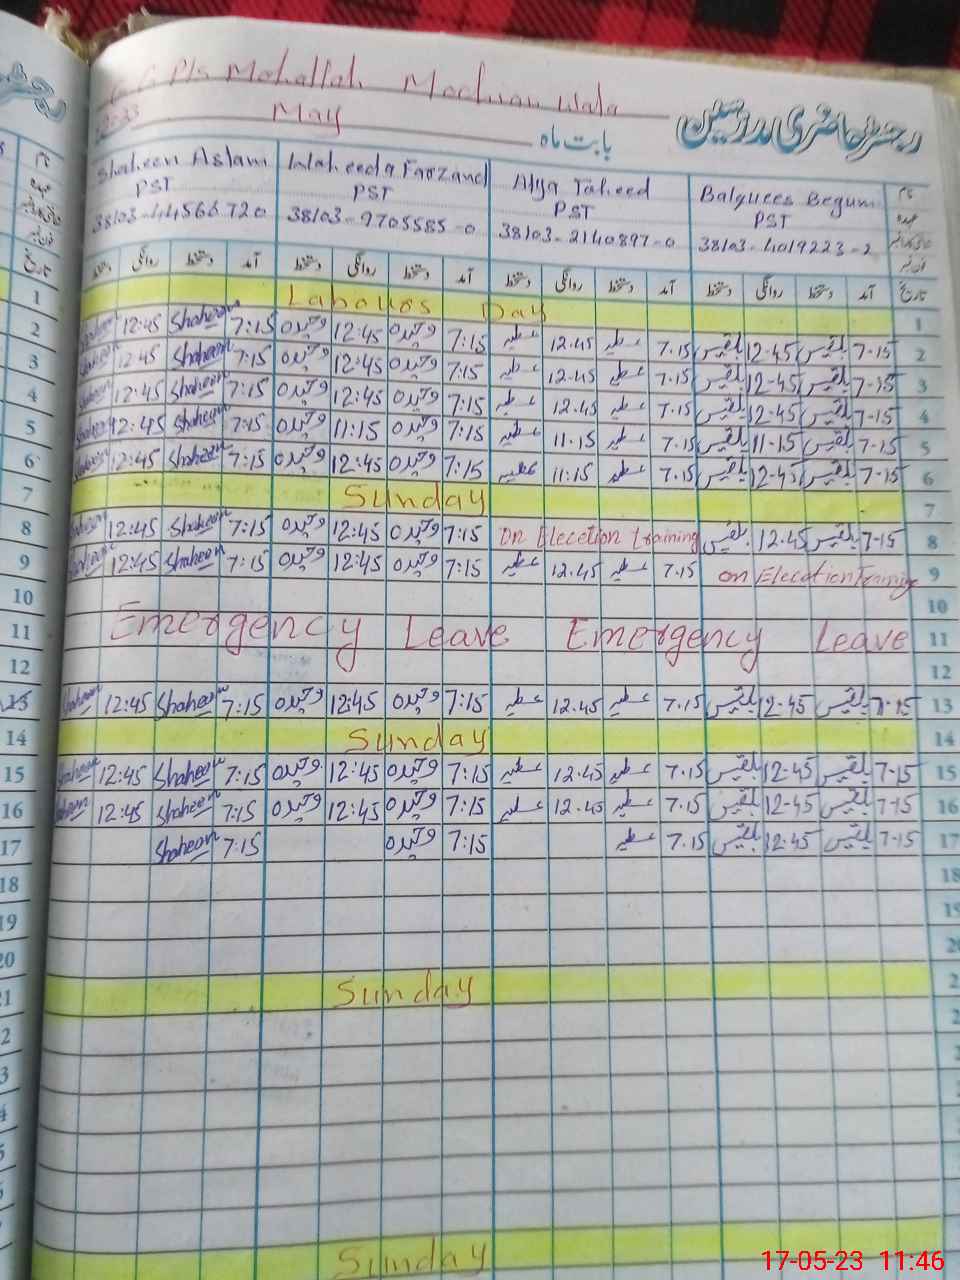 G.G.P/s Mohallah Machian Wala
رجسٹر حاضری مدرسین
2023 May بابت ماہ
Shaheen Aslam Waheeda Farzand Atya Taheed Balquees Begum نام
PST PST PST PST عہدہ
38103-44566720 38103-9705585-0 38103-2140897-0 38103-4019223-2
دستخط روانگی دستخط آمد دستخط روانگی دستخط آمد دستخط روانگی دستخط آمد دستخط روانگی دستخط آمد تاریخ
1 Labours Day 1
2 Shaheen 12:45 Shaheen 7:15 وحیدہ 12:45 وحیدہ 7:15 عطیہ 12.45 عطیہ 7.15 بلقیس 12-45 بلقیس 7-15 2
3 Shaheen 12:45 Shaheen 7:15 وحیدہ 12:45 وحیدہ 7:15 عطیہ 12.45 عطیہ 7.15 بلقیس 12-45 بلقیس 7-15 3
4 Shaheen 12:45 Shaheen 7:15 وحیدہ 12:45 وحیدہ 7:15 عطیہ 12.45 عطیہ 7.15 بلقیس 12-45 بلقیس 7-15 4
5 Shaheen 12:45 Shaheen 7:15 وحیدہ 11:15 وحیدہ 7:15 عطیہ 11.15 عطیہ 7.15 بلقیس 11-15 بلقیس 7-15 5
6 Shaheen 12:45 Shaheen 7:15 وحیدہ 12:45 وحیدہ 7:15 عطیہ 11:15 عطیہ 7.15 بلقیس 12-45 بلقیس 7-15 6
7 Sunday 7
8 Shaheen 12:45 Shaheen 7:15 وحیدہ 12:45 وحیدہ 7:15 On Elecetion training بلقیس 12.45 بلقیس 7-15 8
9 Shaheen 12:45 Shaheen 7:15 وحیدہ 12:45 وحیدہ 7:15 عطیہ 12.45 عطیہ 7.15 on Elecation Training 9
10 10
11 Emergency Leave Emergency Leave 11
12 12
13 Shaheen 12:45 Shaheen 7:15 وحیدہ 12:45 وحیدہ 7:15 عطیہ 12.45 عطیہ 7.15 بلقیس 12-45 بلقیس 7-15 13
14 Sunday 14
15 Shaheen 12:45 Shaheen 7:15 وحیدہ 12:45 وحیدہ 7:15 عطیہ 12.45 عطیہ 7.15 بلقیس 12-45 بلقیس 7-15 15
16 Shaheen 12:45 Shaheen 7:15 وحیدہ 12:45 وحیدہ 7:15 عطیہ 12.45 عطیہ 7.15 بلقیس 12-45 بلقیس 7-15 16
17 Shaheen 7:15 وحیدہ 7:15 عطیہ 7.15 بلقیس 12:45 بلقیس 7-15 17
18 18
19 19
20 20
21 Sunday 2
Sunday
17-05-23 11:46